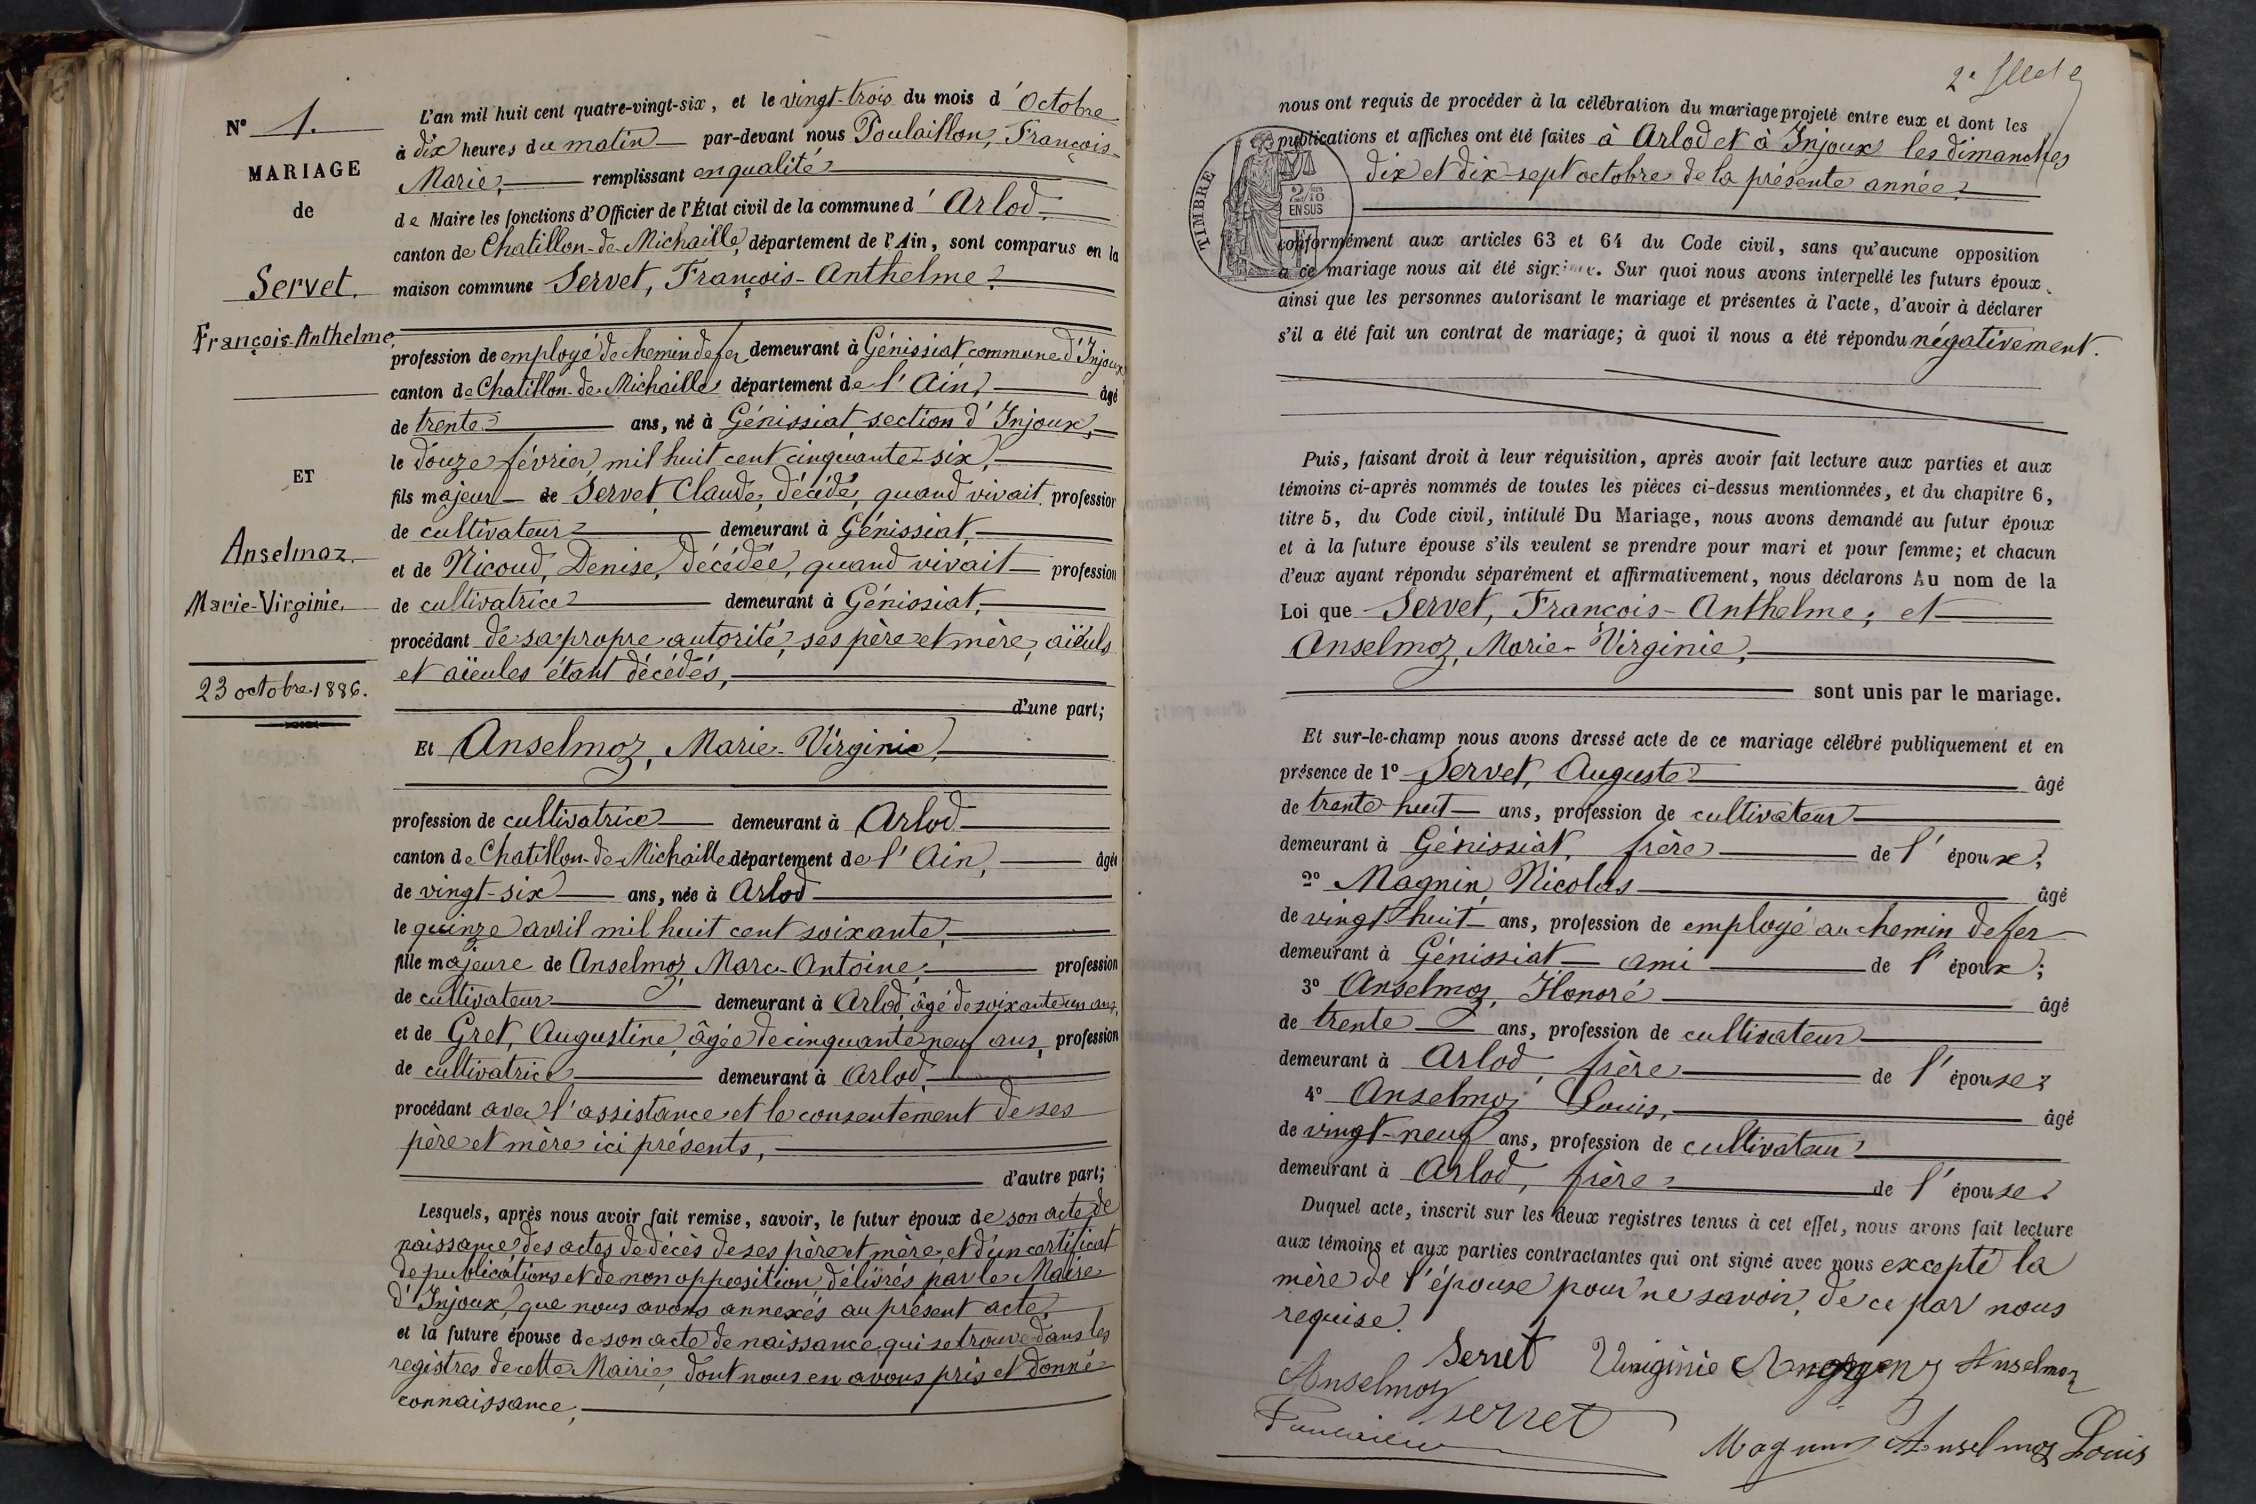 N° 1.
MARIAGE
de
Servet,
François-Anthelme,
ET
Anselmoz,
Marie-Virginie,
23 octobre 1886.
L'an mil huit cent quatre-vingt-six, et le vingt-trois du mois d'Octobre
à dix heures du matin par-devant nous Poulaillon, François-
Marie, remplissant en qualité
de Maire les fonctions d'Officier de l'État civil de la commune d'Arlod,
canton de Chatillon-de-Michaille, département de l'Ain, sont comparus en la
maison commune Servet, François-Anthelme,
profession de employé de chemin de fer, demeurant à Génissiat commune d'Injoux,
canton de Chatillon-de-Michaille, département de l'Ain, âgé
de trente ans, né à Génissiat section d'Injoux,
le douze février mil huit cent cinquante-six,
fils majeur de Servet, Claude, décédé, quand vivait profession
de cultivateur demeurant à Génissiat,
et de Nicoud, Denise, décédée, quand vivait profession
de cultivatrice demeurant à Génissiat,
procédant de sa propre autorité, ses père et mère, aïeuls
et aïeules étant décédés,
d'une part;
Et Anselmoz, Marie-Virginie,
profession de cultivatrice demeurant à Arlod
canton de Chatillon-de-Michaille département de l'Ain, âgée
de vingt-six ans, née à Arlod
le quinze avril mil huit cent soixante,
fille majeure de Anselmoz, Marc-Antoine, profession
de cultivateur demeurant à Arlod, âgé de soixante un ans,
et de Gret, Augustine, âgée de cinquante neuf ans, profession
de cultivatrice demeurant à Arlod,
procédant avec l'assistance et le consentement de ses
père et mère ici présents,
d'autre part;
Lesquels, après nous avoir fait remise, savoir, le futur époux de son acte de
naissance, des actes de décès de ses père et mère, et d'un certificat
de publications et de non opposition, délivrés par le Maire
d'Injoux, que nous avons annexés au présent acte,
et la future épouse de son acte de naissance qui se trouve dans les
registres de cette Mairie, dont nous en avons pris et donné
connaissance,
nous ont requis de procéder à la célébration du mariage projeté entre eux et dont les
publications et affiches ont été faites à Arlod et à Injoux les dimanches
dix et dix-sept octobre de la présente année,
TIMBRE
2/10
EN SUS
conformément aux articles 63 et 64 du Code civil, sans qu'aucune opposition
à ce mariage nous ait été signifiée. Sur quoi nous avons interpellé les futurs époux
ainsi que les personnes autorisant le mariage et présentes à l'acte, d'avoir à déclarer
s'il a été fait un contrat de mariage; à quoi il nous a été répondu négativement.
Puis, faisant droit à leur réquisition, après avoir fait lecture aux parties et aux
témoins ci-après nommés de toutes les pièces ci-dessus mentionnées, et du chapitre 6,
titre 5, du Code civil, intitulé Du Mariage, nous avons demandé au futur époux
et à la future épouse s'ils veulent se prendre pour mari et pour femme; et chacun
d'eux ayant répondu séparément et affirmativement, nous déclarons Au nom de la
Loi que Servet, François-Anthelme, et
Anselmoz, Marie-Virginie,
sont unis par le mariage.
Et sur-le-champ nous avons dressé acte de ce mariage célébré publiquement et en
présence de 1° Servet, Auguste âgé
de trente huit ans, profession de cultivateur
demeurant à Génissiat, frère de l'époux;
2° Magnin, Nicolas âgé
de vingt huit ans, profession de employé au chemin de fer
demeurant à Génissiat ami de l'époux;
3° Anselmoz, Honoré âgé
de trente ans, profession de cultivateur
demeurant à Arlod, frère de l'épouse;
4° Anselmoz Louis, âgé
de vingt-neuf ans, profession de cultivateur
demeurant à Arlod, frère de l'épouse.
Duquel acte, inscrit sur les deux registres tenus à cet effet, nous avons fait lecture
aux témoins et aux parties contractantes qui ont signé avec nous excepté la
mère de l'épouse pour ne savoir, de ce par nous
requise.
Servet Virginie Anselmoz
Anselmoz Servet
Magnin Anselmoz Louis